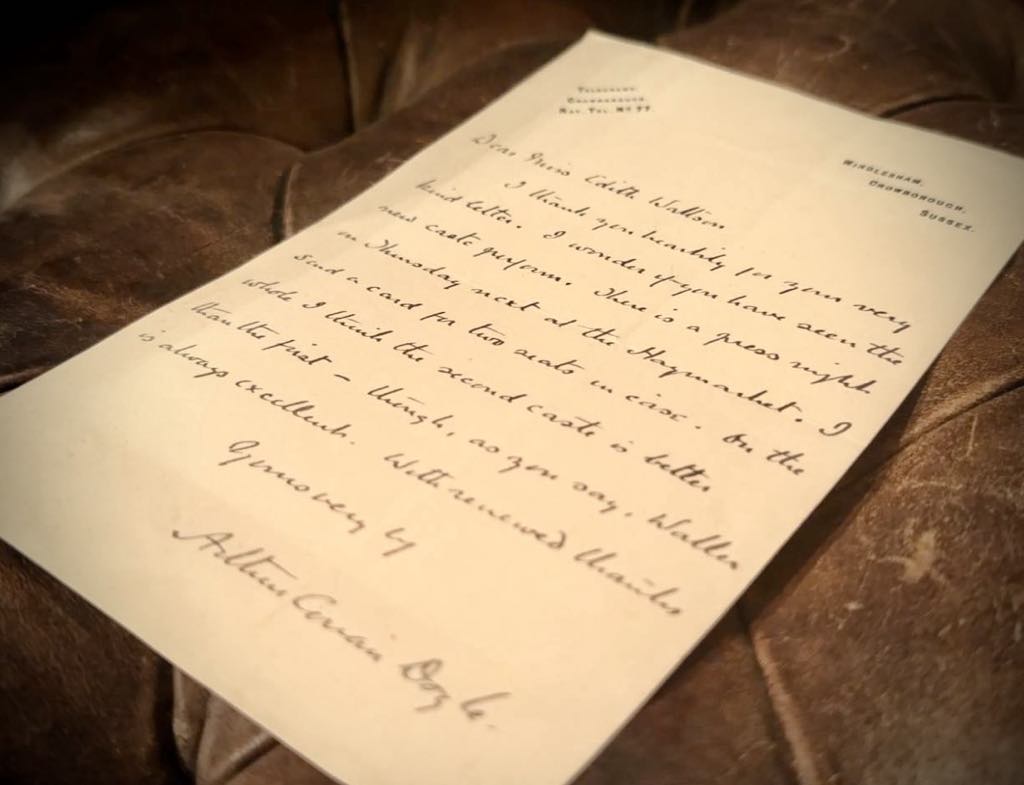 TELEGRAMS,
CROWBOROUGH.
NAT. TEL. No 77.
WINDLESHAM,
CROWBOROUGH,
SUSSEX.
Dear Miss Edith Watson
I thank you heartily for your very
kind letter. I wonder if you have seen the
new caste perform. There is a press night
on Thursday next at the Haymarket. I
send a card for two seats in case. On the
whole I think the second caste is better
than the first – though, as you say, Waller
is always excellent. With renewed thanks
Yours very ly
Arthur Conan Doyle.